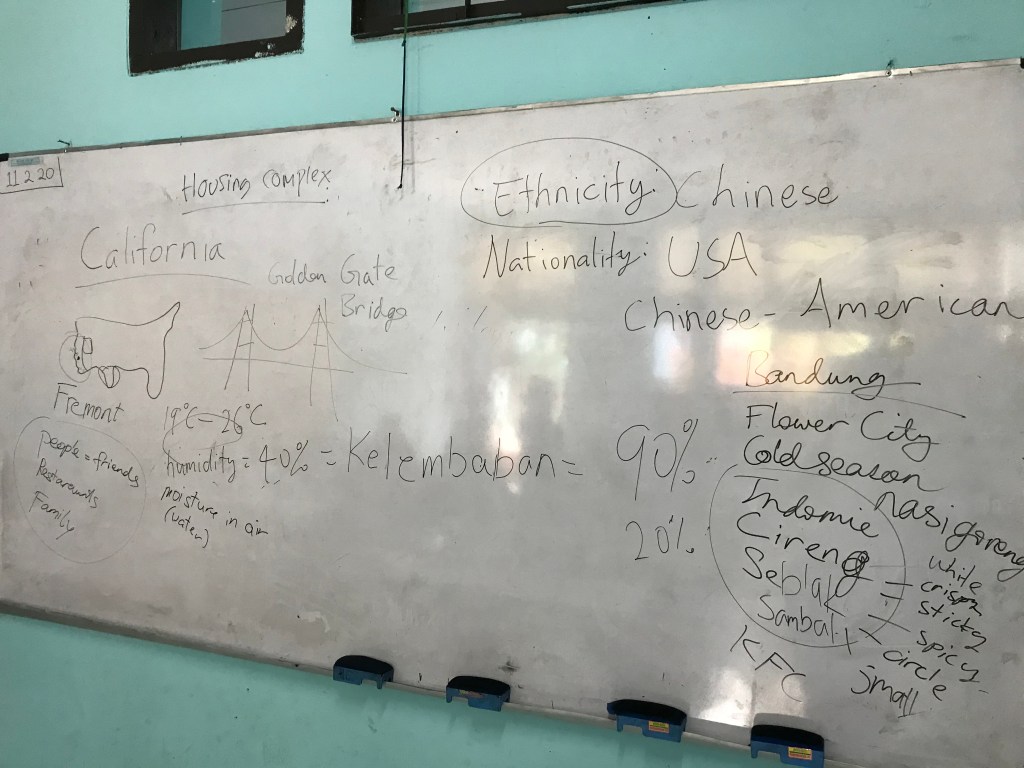 11 2 20
Housing Complex
California
Golden Gate
Bridge
Fremont
People = friends
Restaraunts
Family
19°C - 26°C
humidity = 40% = Kelembaban = 90%
moisture in air
(water)
20%
Ethnicity: Chinese
Nationality: USA
Chinese - American
Bandung
Flower City
Cold season
nasigoreng
Indomie
Cireng
Seblak
Sambal
KFC
white
crispy
sticky
spicy
circle
small